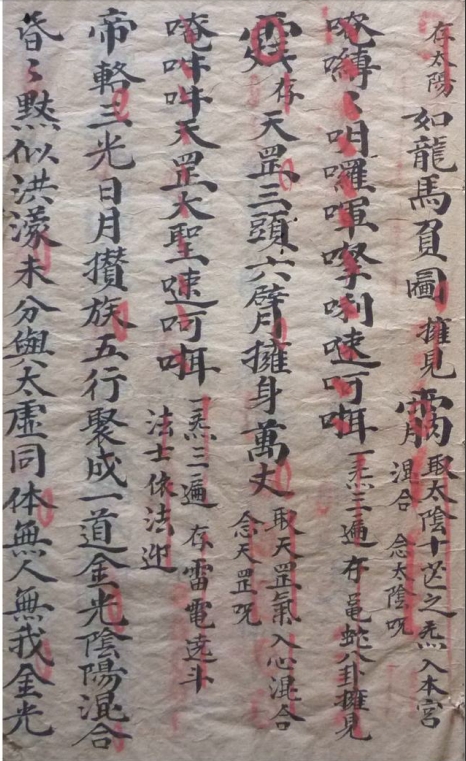 存太陽 如龍馬負圖 擁見 取太陰十芒之炁入本宮混合 念太陰咒
唵嚩〻呾囉㖶嚓唎速呵㖇 一炁三遍 存黽蛇八卦擁見
存天罡三頭六臂月擁身萬丈 取天罡氣入心混合 念天罡咒
唵吽吽天罡大聖速呵㖇 一炁三遍 存雷電遶斗 法士依法迎
帝輅三光日月攢族五行聚成一道金光陰陽混合
昏〻黙似洪濛未分與太虛同体無人無我金光